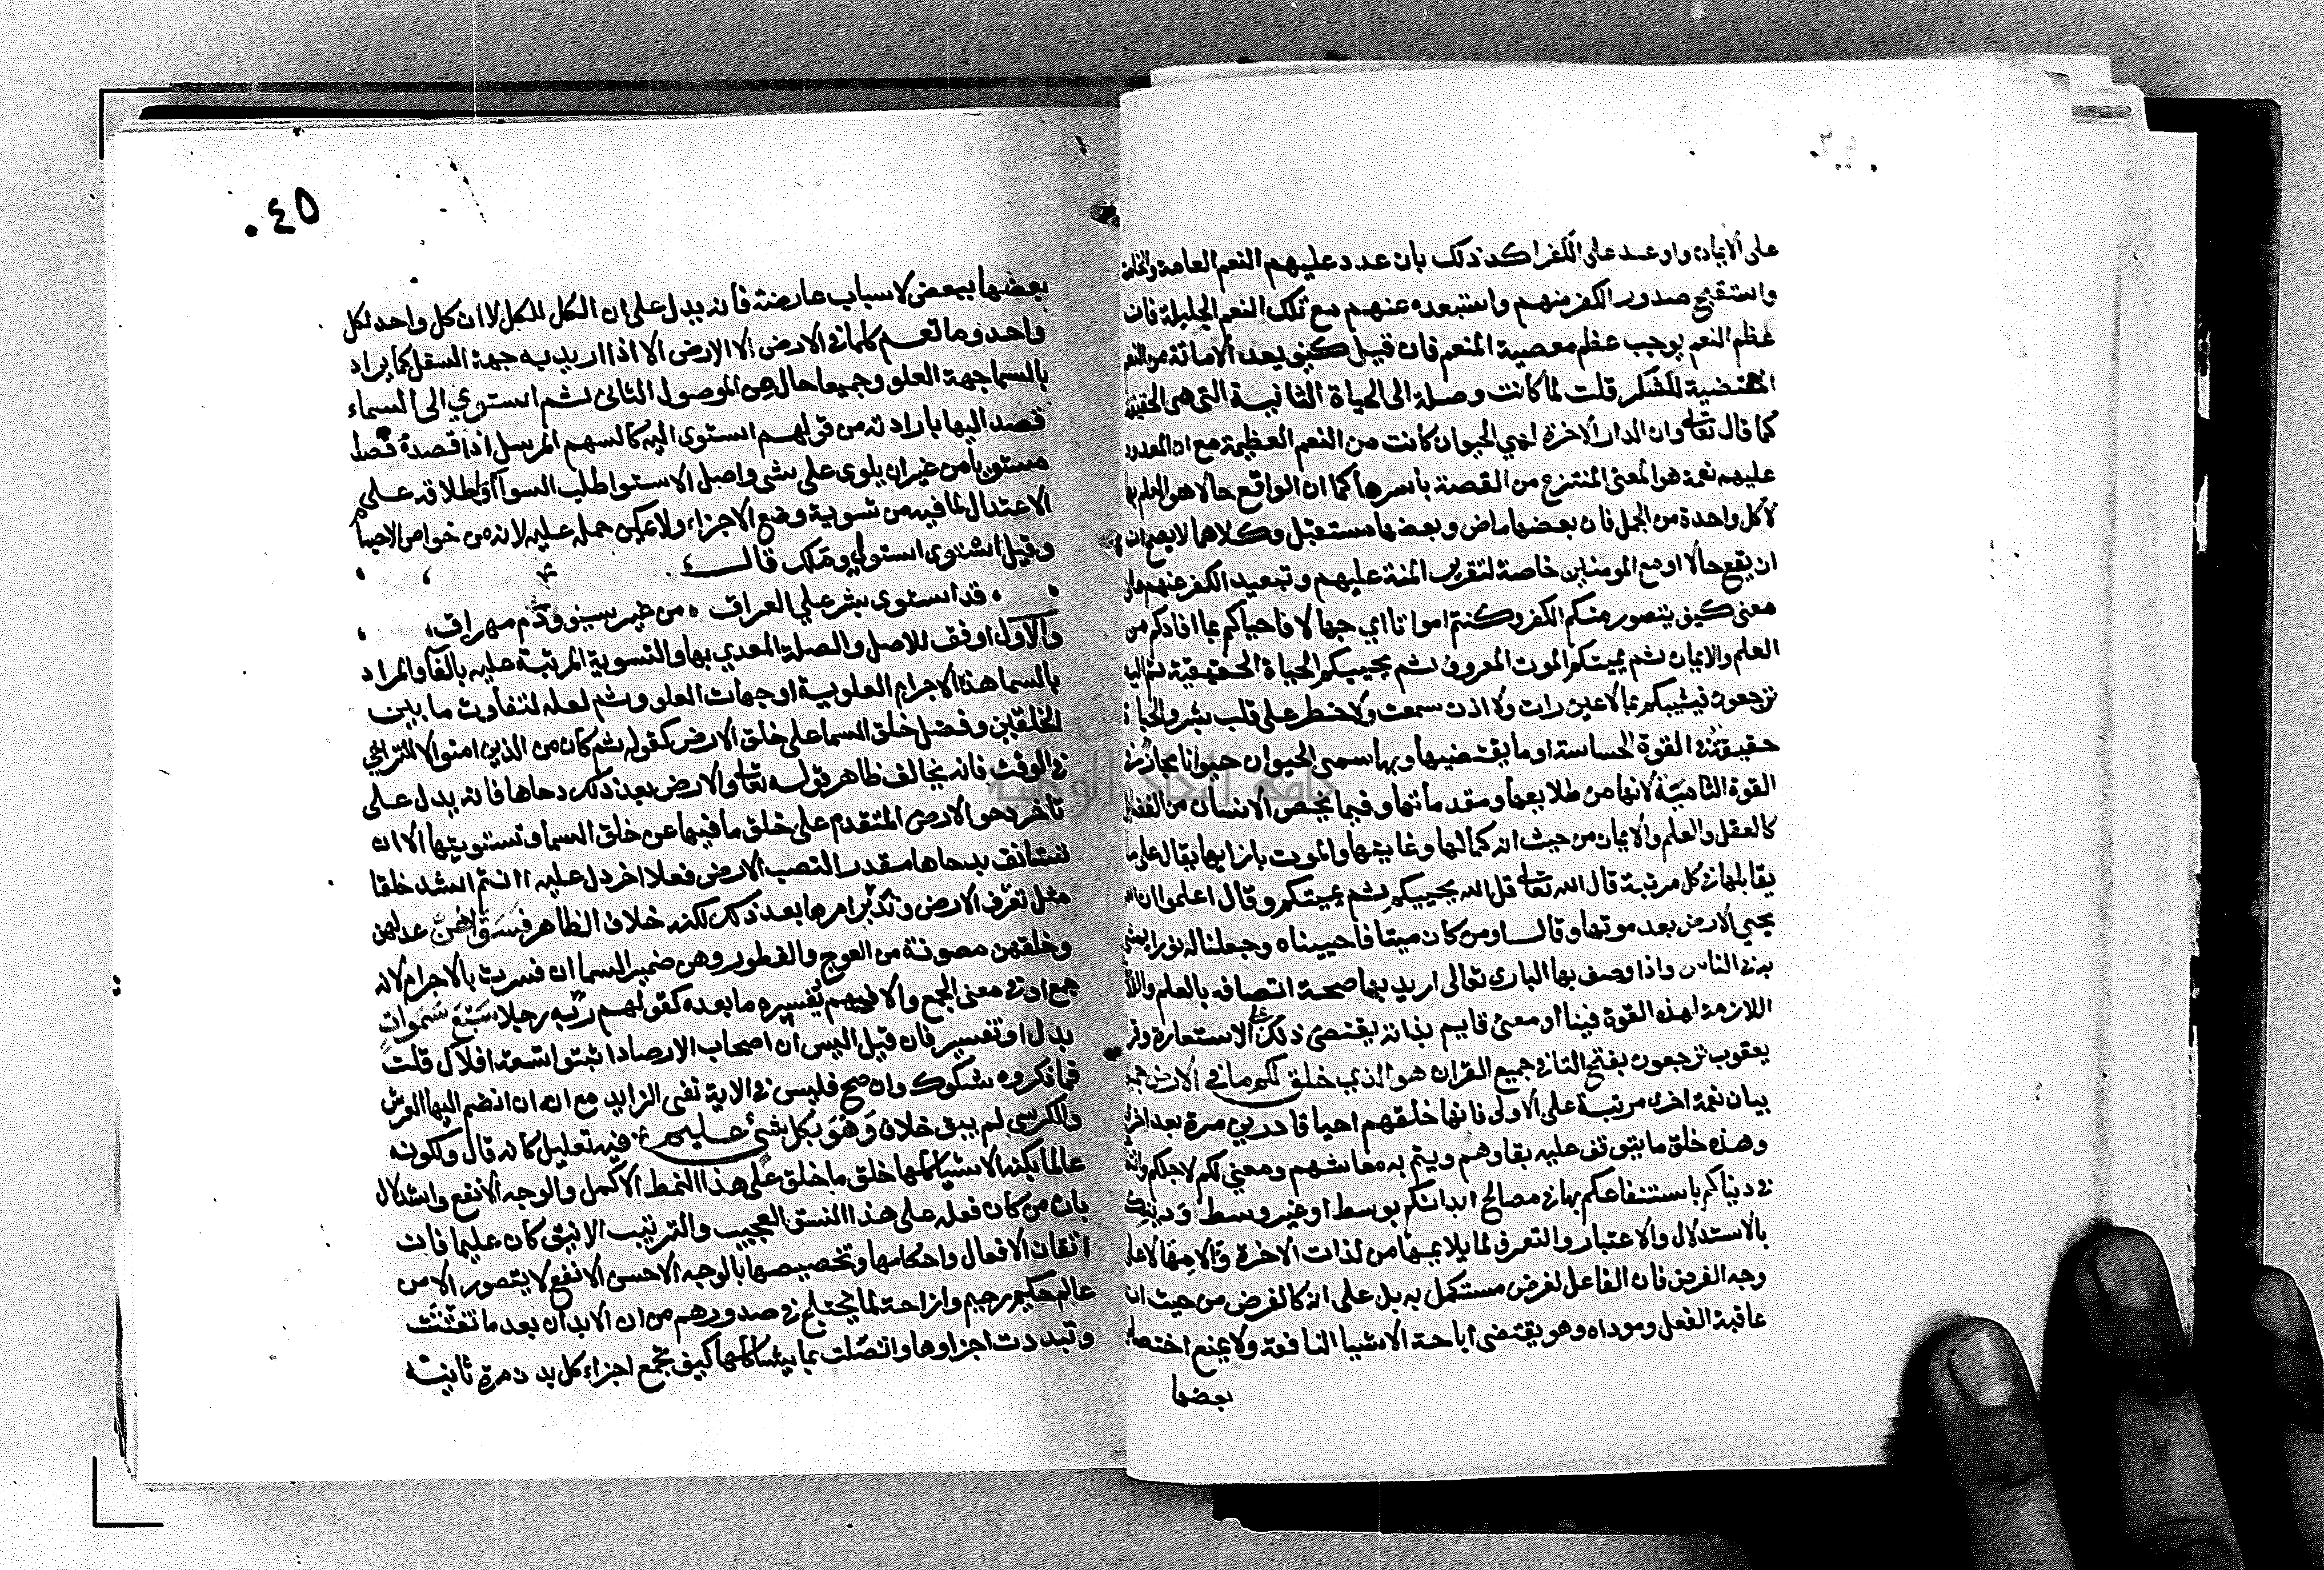 على الايمان واوعد على الكفر اكد ذلك بان عدد عليهم النعم العامة والخاصة
واستقبح صدور الكفر منهم واستبعده عنهم مع تلك النعم الجليلة فان
عظم النعم يوجب عظم معصية المنعم فان قيل كيف يعد الاماتة من النعم
المقتضية للشكر قلت لما كانت وصلة الى الحياة الثانية التى هى الحقيقة
كما قال تعالى وان الدار الاخرة لهي الحيوان كانت من النعم العظيمة مع ان المعدود
عليهم نعمة هو المعنى المنتزع من القصة باسرها كما ان الواقع حالا هو العلم بها
لا كل واحدة من الجمل فان بعضها ماض وبعضها مستقبل وكلاهما لا يصح ان
ان يقع حالا او مع المومنين خاصة لتقرير المنة عليهم وتبعيد الكفر عنهم على
معنى كيف يتصور منكم الكفر وكنتم امواتا اي جهالا فاحياكم بما افادكم من
العلم والايمان ثم يميتكم الموت المعروف ثم يحييكم الحياة الحقيقية ثم اليه
ترجعون فيثيبكم بما لا عين رات ولا اذن سمعت ولا خطر على قلب بشر والحياة
حقيقة في القوة الحساسة او ما يقتضيها وبها سمى الحيوان حيوانا مجاز في
القوة النامية لانها من طلايعها ومقدماتها وفيما يخص الانسان من الفضايل
كالعقل والعلم والايمان من حيث انه كمالها وغايتها والموت بازايها يقال على ما
يقابلها في كل مرتبة قال الله تعالى قل الله يحييكم ثم يميتكم وقال اعلموا ان الله
يحيي الارض بعد موتها وقال اومن كان ميتا فاحييناه وجعلنا له نورا يمشي
به في الناس واذا وصف بها البارى تعالى اريد بها صحة اتصافه بالعلم والقدرة
اللازمة لهذه القوة فينا او معنى قايم بذاته يقتضى ذلك على الاستعارة وقرا
يعقوب ترجعون بفتح التا في جميع القران هو الذي خلق لكم ما في الارض جميعا
بيان نعمة اخرى مرتبة على الاولى فانها خلقهم احيا قادرين مرة بعد اخرى
وهذه خلق ما يتوقف عليه بقاوهم ويتم به معاشهم ومعنى لكم لاجلكم وانتفاعكم
في دنياكم باستنفاعكم بها في مصالح ابدانكم بوسط او غير وسط ودينكم
بالاستدلال والاعتبار والتعرف لما يلايمها من لذات الاخرة والامها لا على
وجه الغرض فان الفاعل لغرض مستكمل به بل على انه كالغرض من حيث انه
عاقبة الفعل وموداه وهو يقتضى اباحة الاشيا النافعة ولا يمنع اختصاص
بعضها
٠٤٥
بعضها ببعض لاسباب عارضة فانه يدل على ان الكل للكل لا ان كل واحد لكل
واحد وما تعم كلما في الارض لا الارض الا اذا اريد به جهة السفل كما يراد
بالسما جهة العلو وجميعا حال من الموصول الثانى ثم استوي الى السماء
قصد اليها بارادته من قولهم استوى اليه كالسهم المرسل اذا قصده قصدا
مستويا من غير ان يلوى على شي واصل الاستوا طلب السوا واطلاقه على
الاعتدال لما فيه من تسوية وضع الاجزاء ولا يمكن حمله عليه لانه من خواص الاجسام
وقيل استوى استولى وملك قال
قد استوى بشر على العراق من غير سيف ودم مهراق
والاول اوفق للاصل والصلة المعدي بها والتسوية المرتبة عليه بالفا والمراد
بالسما هذه الاجرام العلوية او جهات العلو وثم لعله لتفاوت ما بين
الخلقين وفضل خلق السما على خلق الارض كقوله ثم كان من الذين امنوا لا للتراخي
في الوقت فانه يخالف ظاهر قوله تعالى والارض بعد ذلك دحاها فانه يدل على
تاخر دحو الارض المتقدم على خلق ما فيها عن خلق السما وتسويتها الا ان
تستانف بدحاها مقدرا لنصب الارض فعلا اخر دل عليه اانتم اشد خلقا
مثل تعرف الارض وتدبر امرها بعد ذلك لكنه خلاف الظاهر فسواهن عدلهن
وخلقهن مصونة من العوج والفطور وهن ضمير السما ان فسرت بالاجرام لانه
جمع او في معنى الجمع والا فمبهم يفسره ما بعده كقولهم ربه رجلا سبع سموات
بدل او تفسير فان قيل اليس ان اصحاب الارصاد اثبتوا تسعة افلاك قلت
فما ذكروه شكوك وان صح فليس في الاية نفى الزايد مع انه ان انضم اليها العرش
والكرسى لم يبق خلاف وهو بكل شئ عليم فيه تعليل كانه قال ولكونه
عالما بكنه الاشيا كلها خلق ما خلق على هذا النمط الاكمل والوجه الانفع واستدلال
بان من كان فعله على هذا النسق العجيب والترتيب الانيق كان عليما فان
اتقان الافعال واحكامها وتخصيصها بالوجه الاحسن الانفع لا يتصور الا من
عالم حكيم رحيم وازاحة لما يختلج في صدورهم من ان الابدان بعد ما تفتتت
وتبددت اجزاوها واتصلت بما يشاكلها كيف تجمع اجزاء كل بدن مرة ثانية